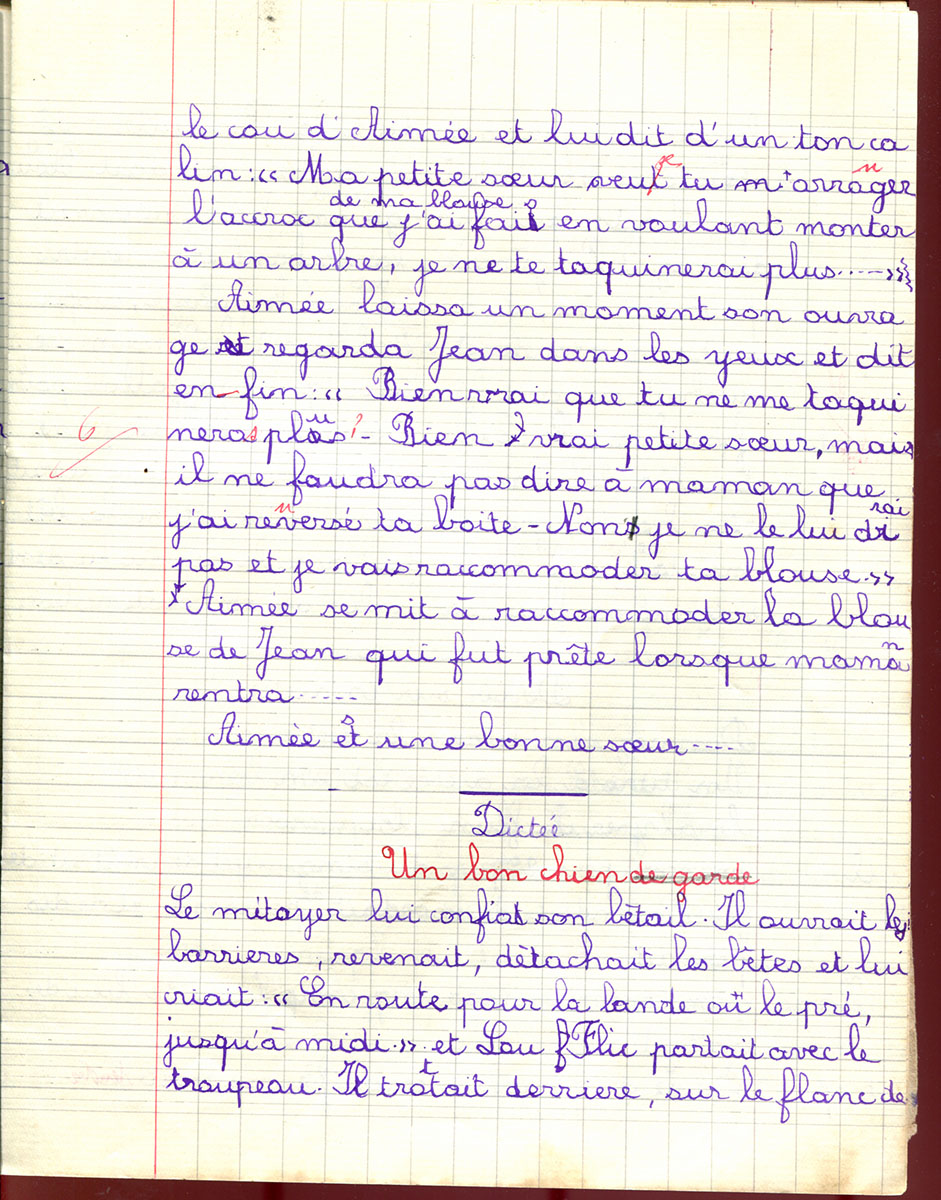 le cou d'Aimée et lui dit d'un ton ca
lin : « Ma petite sœur veux tu m'arranger
de ma blouse
l'accroc que j'ai fait en voulant monter
à un arbre, je ne te taquinerai plus....»
Aimée laissa un moment son ouvra
ge et regarda Jean dans les yeux et dit
en fin : « Bien vrai que tu ne me taqui
neras plus ? - Bien vrai petite sœur, mais
6
il ne faudra pas dire à maman que
j'ai renversé ta boite - Non je ne le lui dirai
pas et je vais raccommoder ta blouse. »
Aimée se mit à raccommoder la blou
se de Jean qui fut prête lorsque maman
rentra.....
Aimée est une bonne sœur....
Dictée
Un bon chien de garde
Le mitayer lui confiat son bêtail. Il ouvrait les
barrieres, revenait, détachait les bêtes et lui
criait : « En route pour la lande où le pré,
jusqu'à midi » et Lou Flic partait avec le
troupeau. Il trottait derriere, sur le flanc de